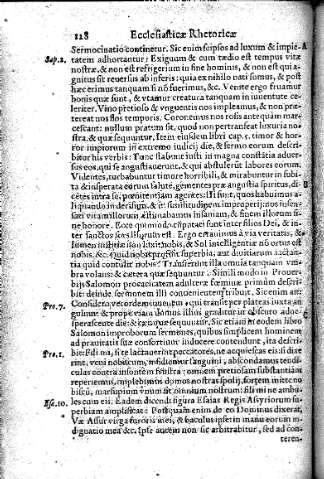 128 Ecclesiasticæ Rhetoricæ
Sermocinatio continetur. Sic enim seipsos ad luxum & impie- A
Sap.2. tatem adhortantur: Exiguum & cum tædio est tempus vitæ
nostræ, & non est refrigerium in fine hominis, & non est qui a-
gnitus sit reuersus ab inferis: quia ex nihilo nati sumus, & post
hæc erimus tanquam si nō fuerimus, &c. Venite ergo fruamur
bonis quæ sunt, & vtamur creatura tanquam in iuuentute ce-
leriter. Vino pretioso & vnguentis nos impleamus, & non præ-
tereat nos flos temporis. Coronemus nos rosis antequàm mar-
cescant: nullum pratum sit, quod non pertranseat luxuria no-
stra, & quæ sequuntur. Item eiusdem libri cap. 5. timor & hor-
ror impiorum in extremo iudicij die, & sermo eorum descri-
bitur his verbis: Tunc stabunt iusti in magna constātia aduer-
sus eos, qui se angustiauerunt, & qui abstulerūt labores eorum.
Videntes, turbabuntur timore horribili, & mirabuntur in subi-
ta & insperata eorum salute, gementes præ angustia spiritus, di- B
centes intra se, pœnitentiam agentes: Hi sunt, quos habuimus a-
liquando in derisum, & in similitudinem improperij: nos insen-
sati vitam illorum æstimabamus insaniam, & finem illorum si-
ne honore. Ecce quomodo cōputati sunt inter filios Dei, & in-
ter sanctos sors illorum est. Ergo errauimus à via veritatis, &
lumen iustitiæ non luxit nobis, & Sol intelligentiæ nō ortus est
nobis, &c. Quid nobis profuit superbia, aut diuitiarum iactan-
tia quid contulit nobis? Transierunt illa omnia tanquam vm-
bra volans: & cætera quæ sequuntur. Simili modo in Prouer-
bijs Salomon
describit: deinde sermonem illi conuenientem tribuit. Sic enim ait:
Pro.7. Considero vecordem iuuenem, qui transit per plateas iuxta an-
gulum, & propè viam domus illius graditur in obscuro aduesperascente die: & cætera quæ sequuntur. Sic etiam in eodem libro
Salomon improborum sermones, quibus simplicem hominem
ad prauitatis suæ consortium inducere contendunt, ita descri-
Pro.1. bit: Fili mi, si te lactauerint peccatores, ne acquiescas eis: si dixe-
rint, veni nobiscum, insidiemur sanguini, abscondamus tendi-
culas contra insontem frustrà: omnem pretiosam substantiam
reperiemus, implebimus domos nostras spolijs, sortem mitte no-
biscū, marsupium vnum sit omnium nostrum: fili mi ne ambu-
Esa.10. les cum eis. Eadem dicendi figura Esaias Regis Assyriorum su-
perbiam
Væ Assur virga furoris mei, & baculus ipse: in manu eorum in-
dignatio mea &c. Ipse autem non sic arbitrabitur, sed ad con-
teren-